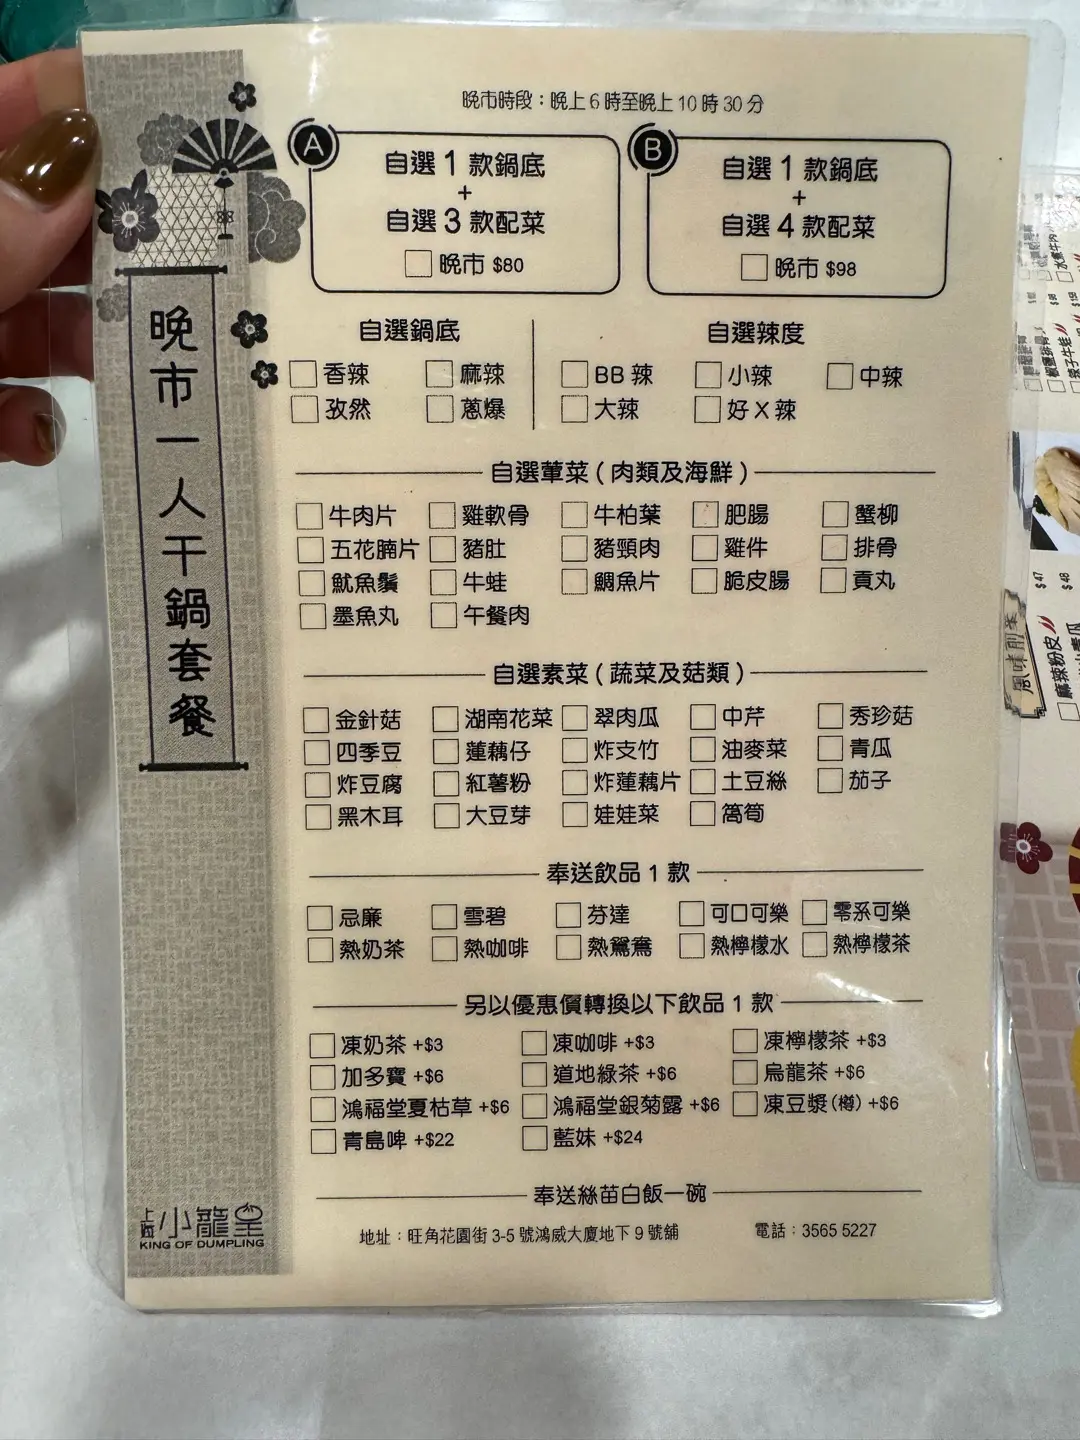 晚市時段：晚上6時至晚上10時30分
A
自選1款鍋底
+
自選3款配菜
晚市 $80
B
自選1款鍋底
+
自選4款配菜
晚市 $98
晚市一人干鍋套餐
自選鍋底
香辣 麻辣
孜然 蔥爆
自選辣度
BB辣 小辣 中辣
大辣 好X辣
自選葷菜(肉類及海鮮)
牛肉片 雞軟骨 牛柏葉 肥腸 蟹柳
五花腩片 豬肚 豬頸肉 雞件 排骨
魷魚鬚 牛蛙 鯛魚片 脆皮腸 貢丸
墨魚丸 午餐肉
自選素菜(蔬菜及菇類)
金針菇 湖南花菜 翠肉瓜 中芹 秀珍菇
四季豆 蓮藕仔 炸支竹 油麥菜 青瓜
炸豆腐 紅薯粉 炸蓮藕片 土豆絲 茄子
黑木耳 大豆芽 娃娃菜 萵筍
奉送飲品1款
忌廉 雪碧 芬達 可口可樂 零系可樂
熱奶茶 熱咖啡 熱鴛鴦 熱檸檬水 熱檸檬茶
另以優惠價轉換以下飲品1款
凍奶茶 +$3 凍咖啡 +$3 凍檸檬茶 +$3
加多寶 +$6 道地綠茶 +$6 烏龍茶 +$6
鴻福堂夏枯草 +$6 鴻福堂銀菊露 +$6 凍豆漿(樽) +$6
青島啤 +$22 藍妹 +$24
奉送絲苗白飯一碗
地址：旺角花園街3-5號鴻威大廈地下9號舖 電話：3565 5227
上海小籠皇
KING OF DUMPLING
水煮牛肉
$47
$48
風味前菜
麻辣粉皮